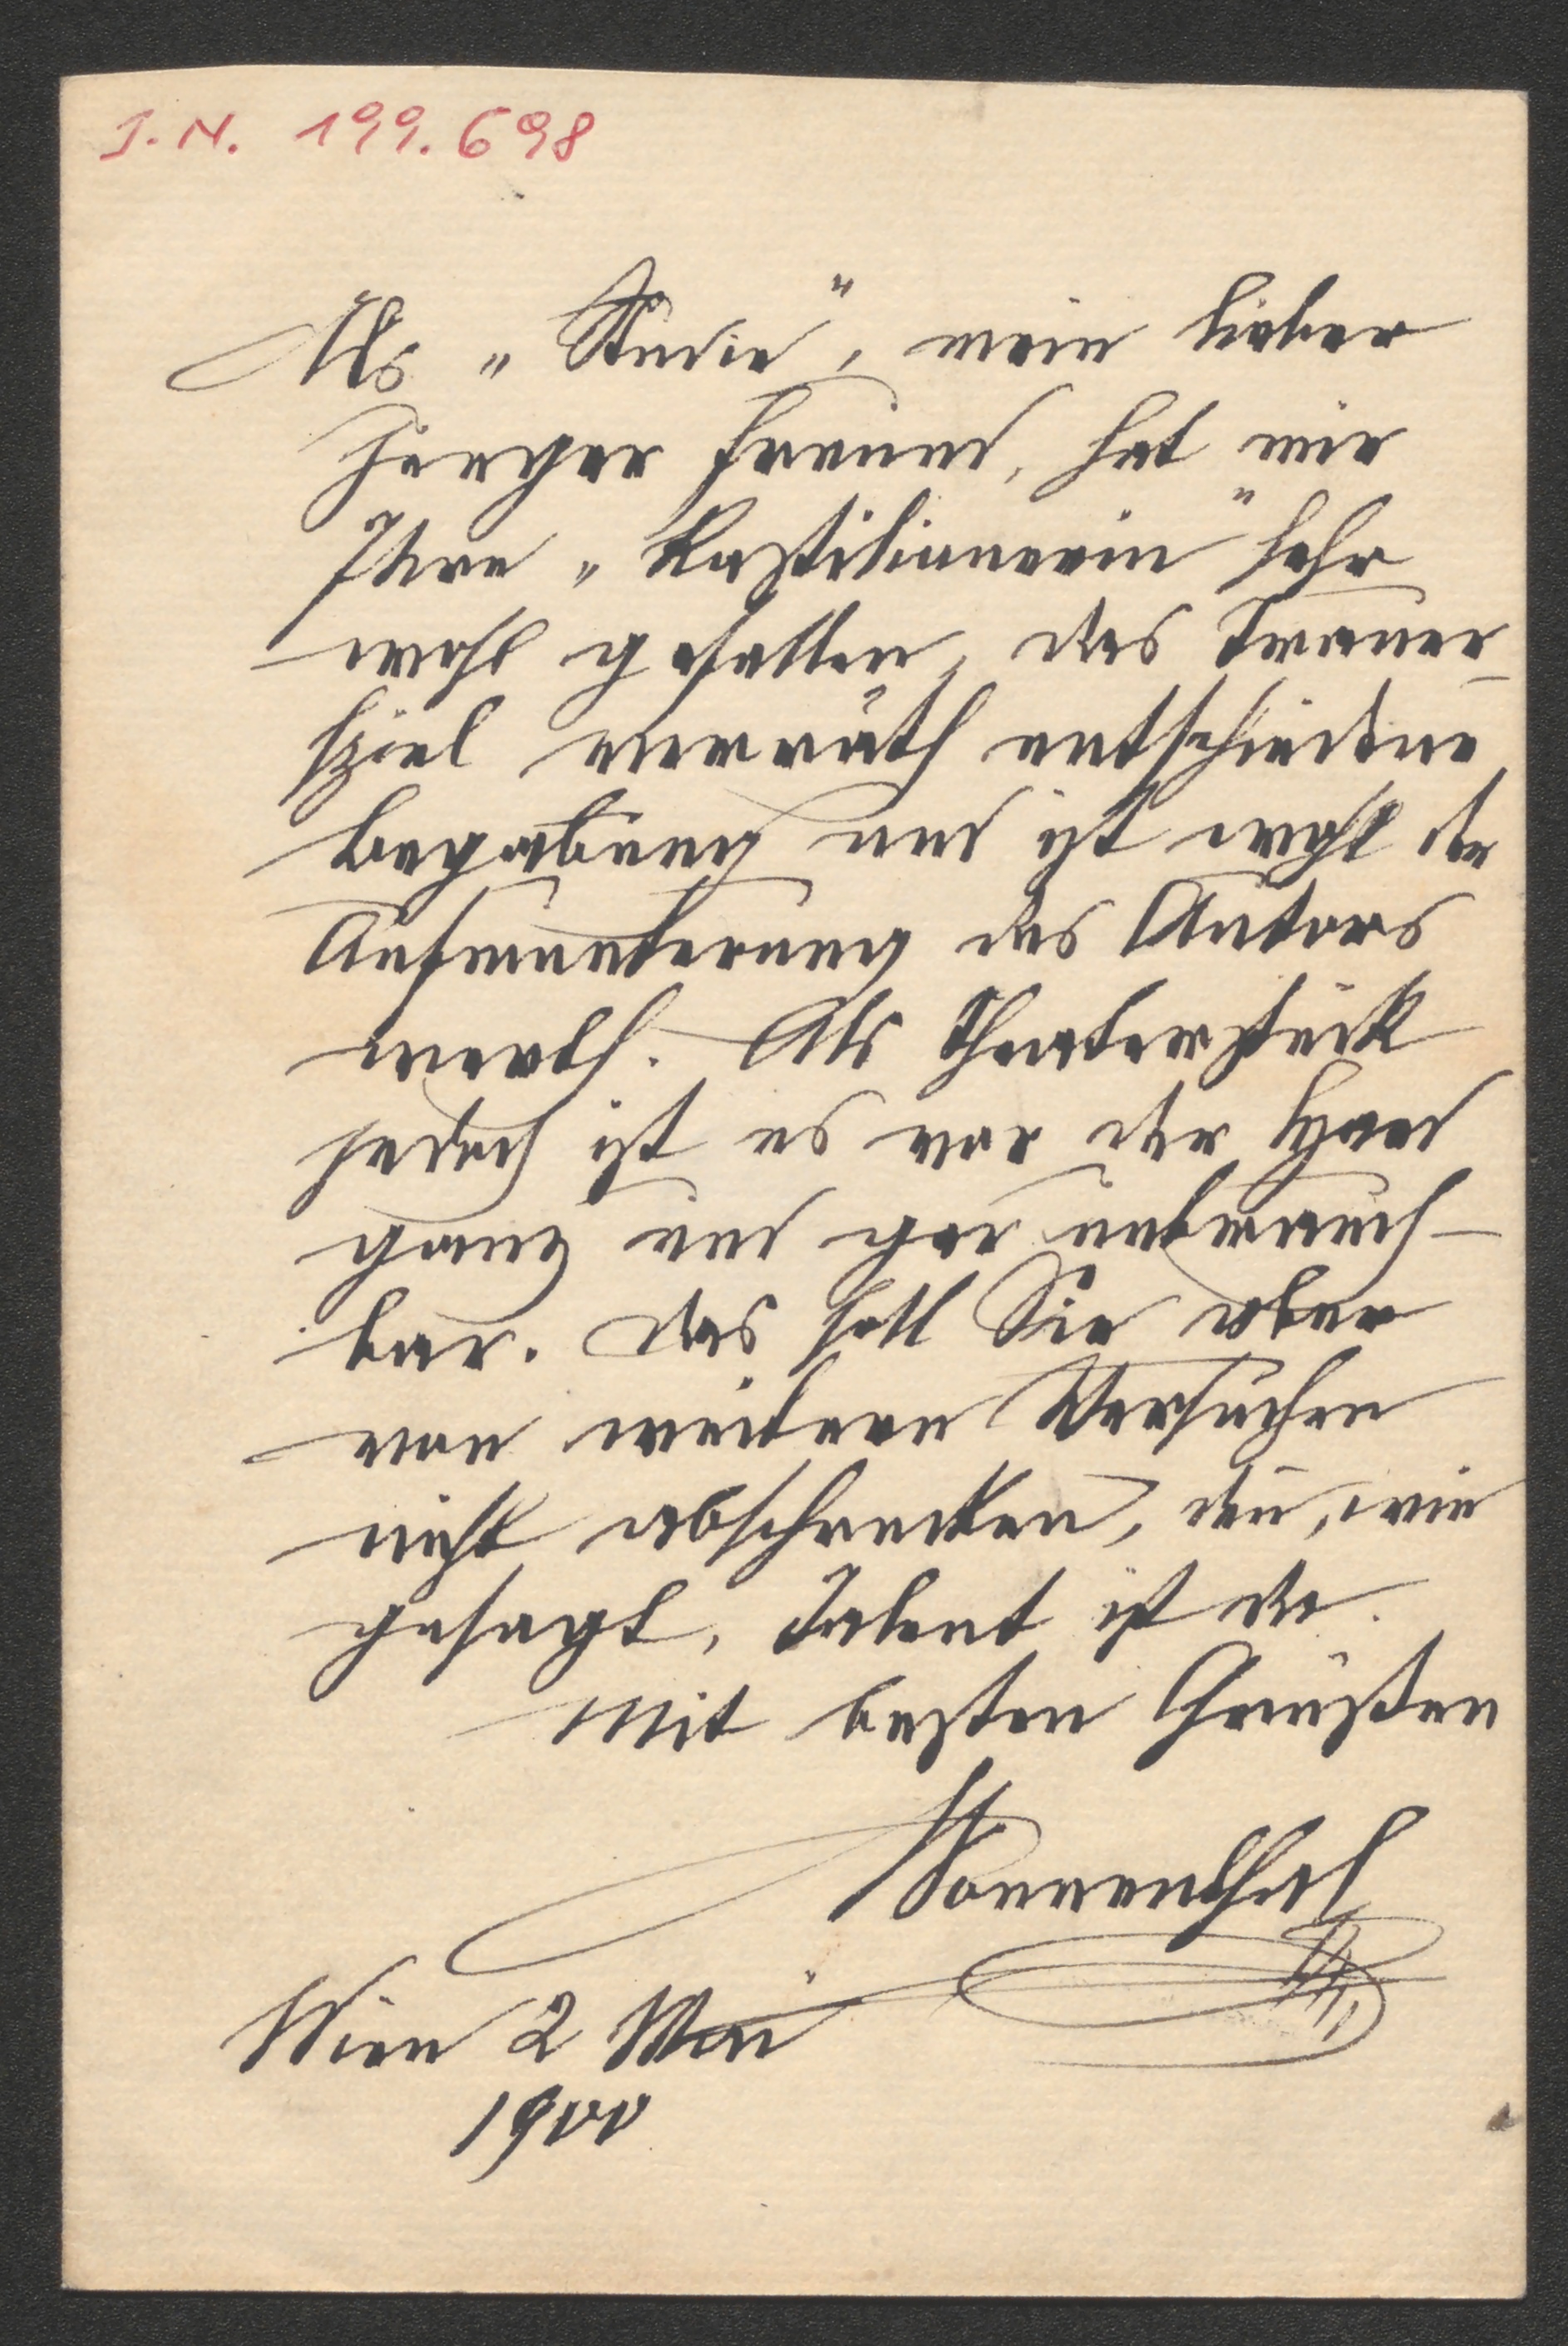 J.N. 199.698
Als „Studie“, mein lieber
junger Freund, hat mir
Ihre „Kastilianerin“ sehr
wohl gefallen, das Trauer-
spiel verräth entschiedene
Begabung und ist wohl der
Aufmunterung des Autors
werth. Als Theaterstück
jedoch ist es vor der Hand
ganz und gar unbrauch-
bar. Das soll Sie aber
von weitern Versuchen
nicht abschrecken, den̅, wie
gesagt, Talent ist da.
Mit besten Grüßen
Sonnenthal
Wien 2 Mai
1900